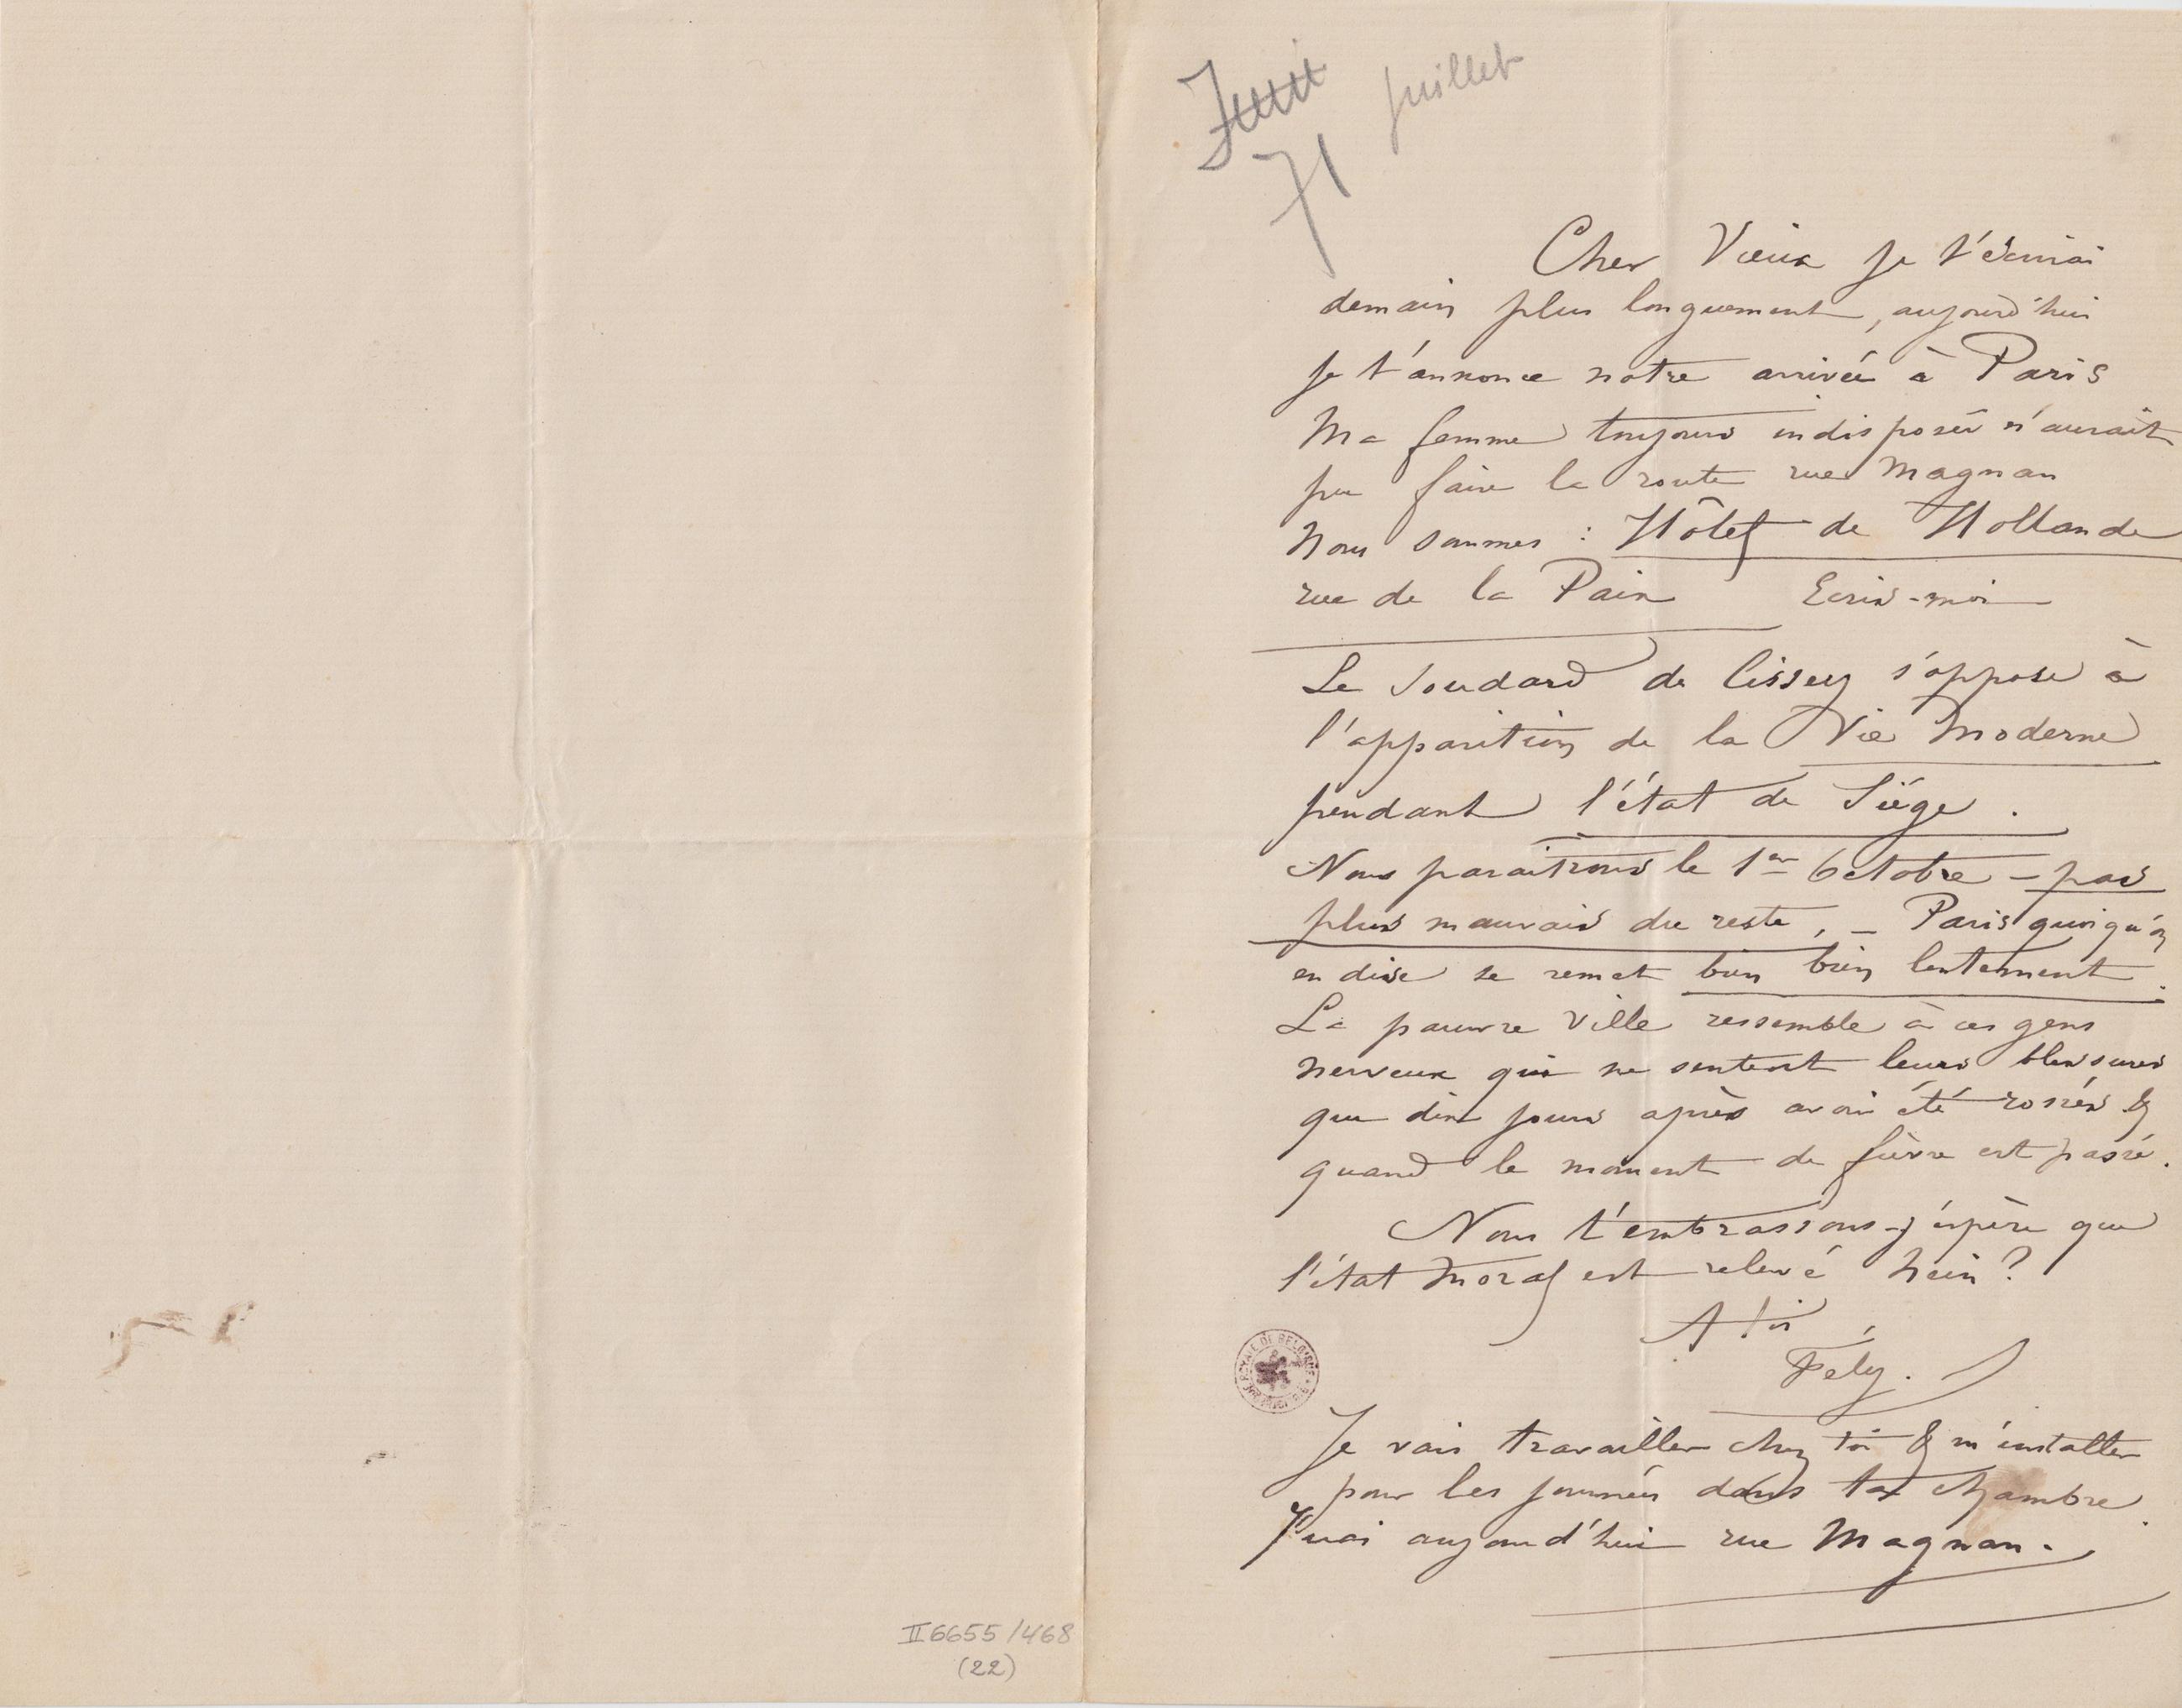 Juin juillet
71
Cher Vieux je t'écrirai
demain plus longuement, aujourd'hui
je t'annonce notre arrivée à Paris
Ma femme toujours indisposée n'aurait
pu faire la route rue Magnan
Nous sommes : Hôtel de Hollande
rue de la Paix Ecris-moi
Le Soudard de Cissey s'oppose à
l'apparition de la Vie Moderne
pendant l'état de Siège.
Nous paraitrons le 1er Octobre – pas
plus mauvais du reste, – Paris quoiqu'on
en dise se remet bien bien lentement.
La pauvre Ville ressemble à ces gens
nerveux qui ne sentent leurs blessures
que dix jours après avoir été rossés &
quand le moment de fièvre est passé.
Nous t'embrassons – j'espère que
l'état moral est relevé hein?
A toi
Fély.
BIBLIOTHEQUE ROYALE DE BELGIQUE
Je vais travailler chez toi & m'installer
pour les journées dans ta chambre.
J'irai aujourd'hui rue Magnan.
II 6655/468
(22)